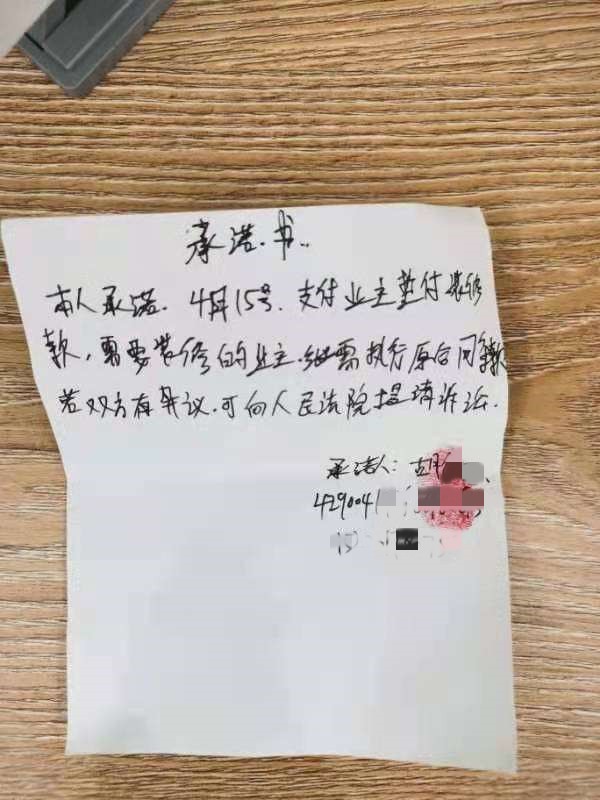 承诺书.
本人承诺.4月15号.支付业主垫付装修
款,需要装修的业主.继需执行原合同条款
若双方有争议.可向人民法院提请诉讼.
承诺人:胡
429004